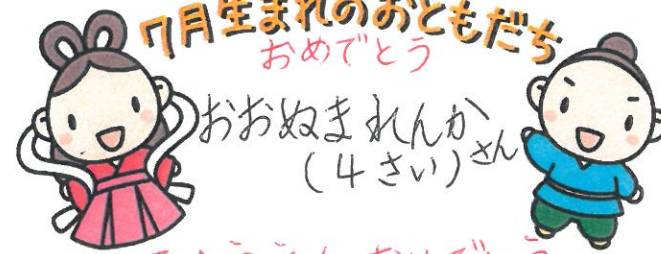 7月生まれのおともだち
おめでとう
おおぬまれんか
(4さい)さん